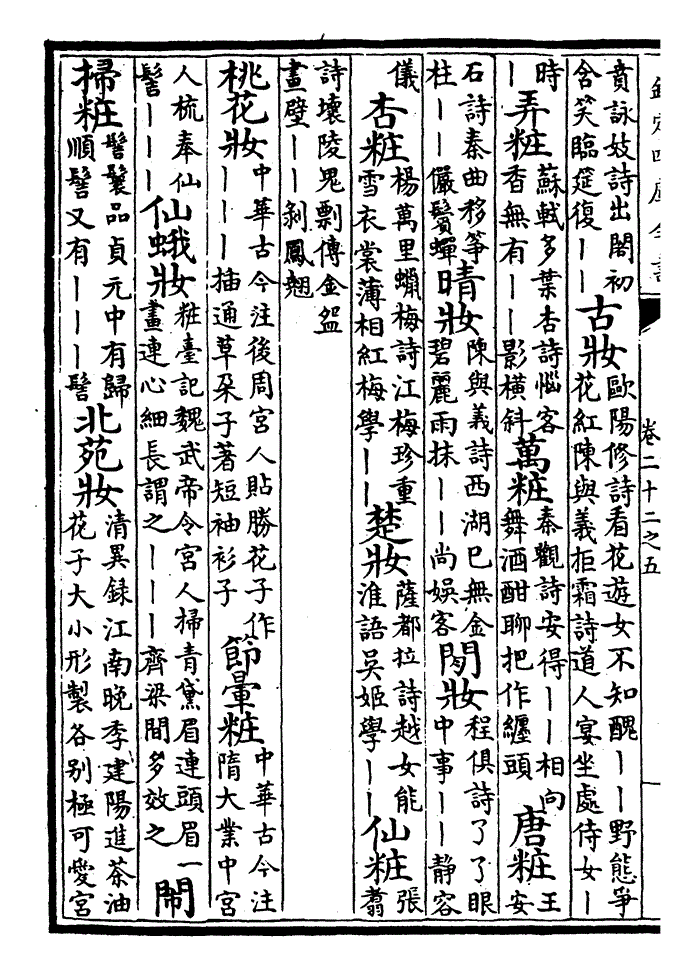 欽定四庫全書
卷二十二之五
賁詠妓詩出閣初含笑臨筵復――古妝歐陽修詩看花遊女不知醜――野態爭花紅陳與義拒霜詩道人宴坐處侍女―
時―弄粧蘇軾多葉杏詩惱客香無有――影橫斜萬粧秦觀詩安得――相向舞酒酣聊把作纏頭唐粧王安
石詩秦曲移箏柱――儼鬢蟬晴妝陳與義詩西湖已無金碧麗雨抹――尚娛客閒妝程俱詩了了眼中事――靜容
儀杏粧楊萬里蠟梅詩江梅珍重雪衣裳薄相紅梅學――楚妝薩都拉詩越女能淮語吳姬學――仙粧張翥
詩壞陵鬼剽傳金盌畫壁――剝鳳翹
桃花妝中華古今注後周宮人貼勝花子作―――插通草朶子著短袖衫子節暈粧中華古今注隋大業中宮
人梳奉仙髻―――仙蛾妝粧臺記魏武帝令宮人掃青黛眉連頭眉一畫連心細長謂之―――齊梁間多效之鬧
掃粧髻鬟品貞元中有歸順髻又有―――髻北苑妝清異録江南晚季建陽進茶油花子大小形製各别極可愛宮